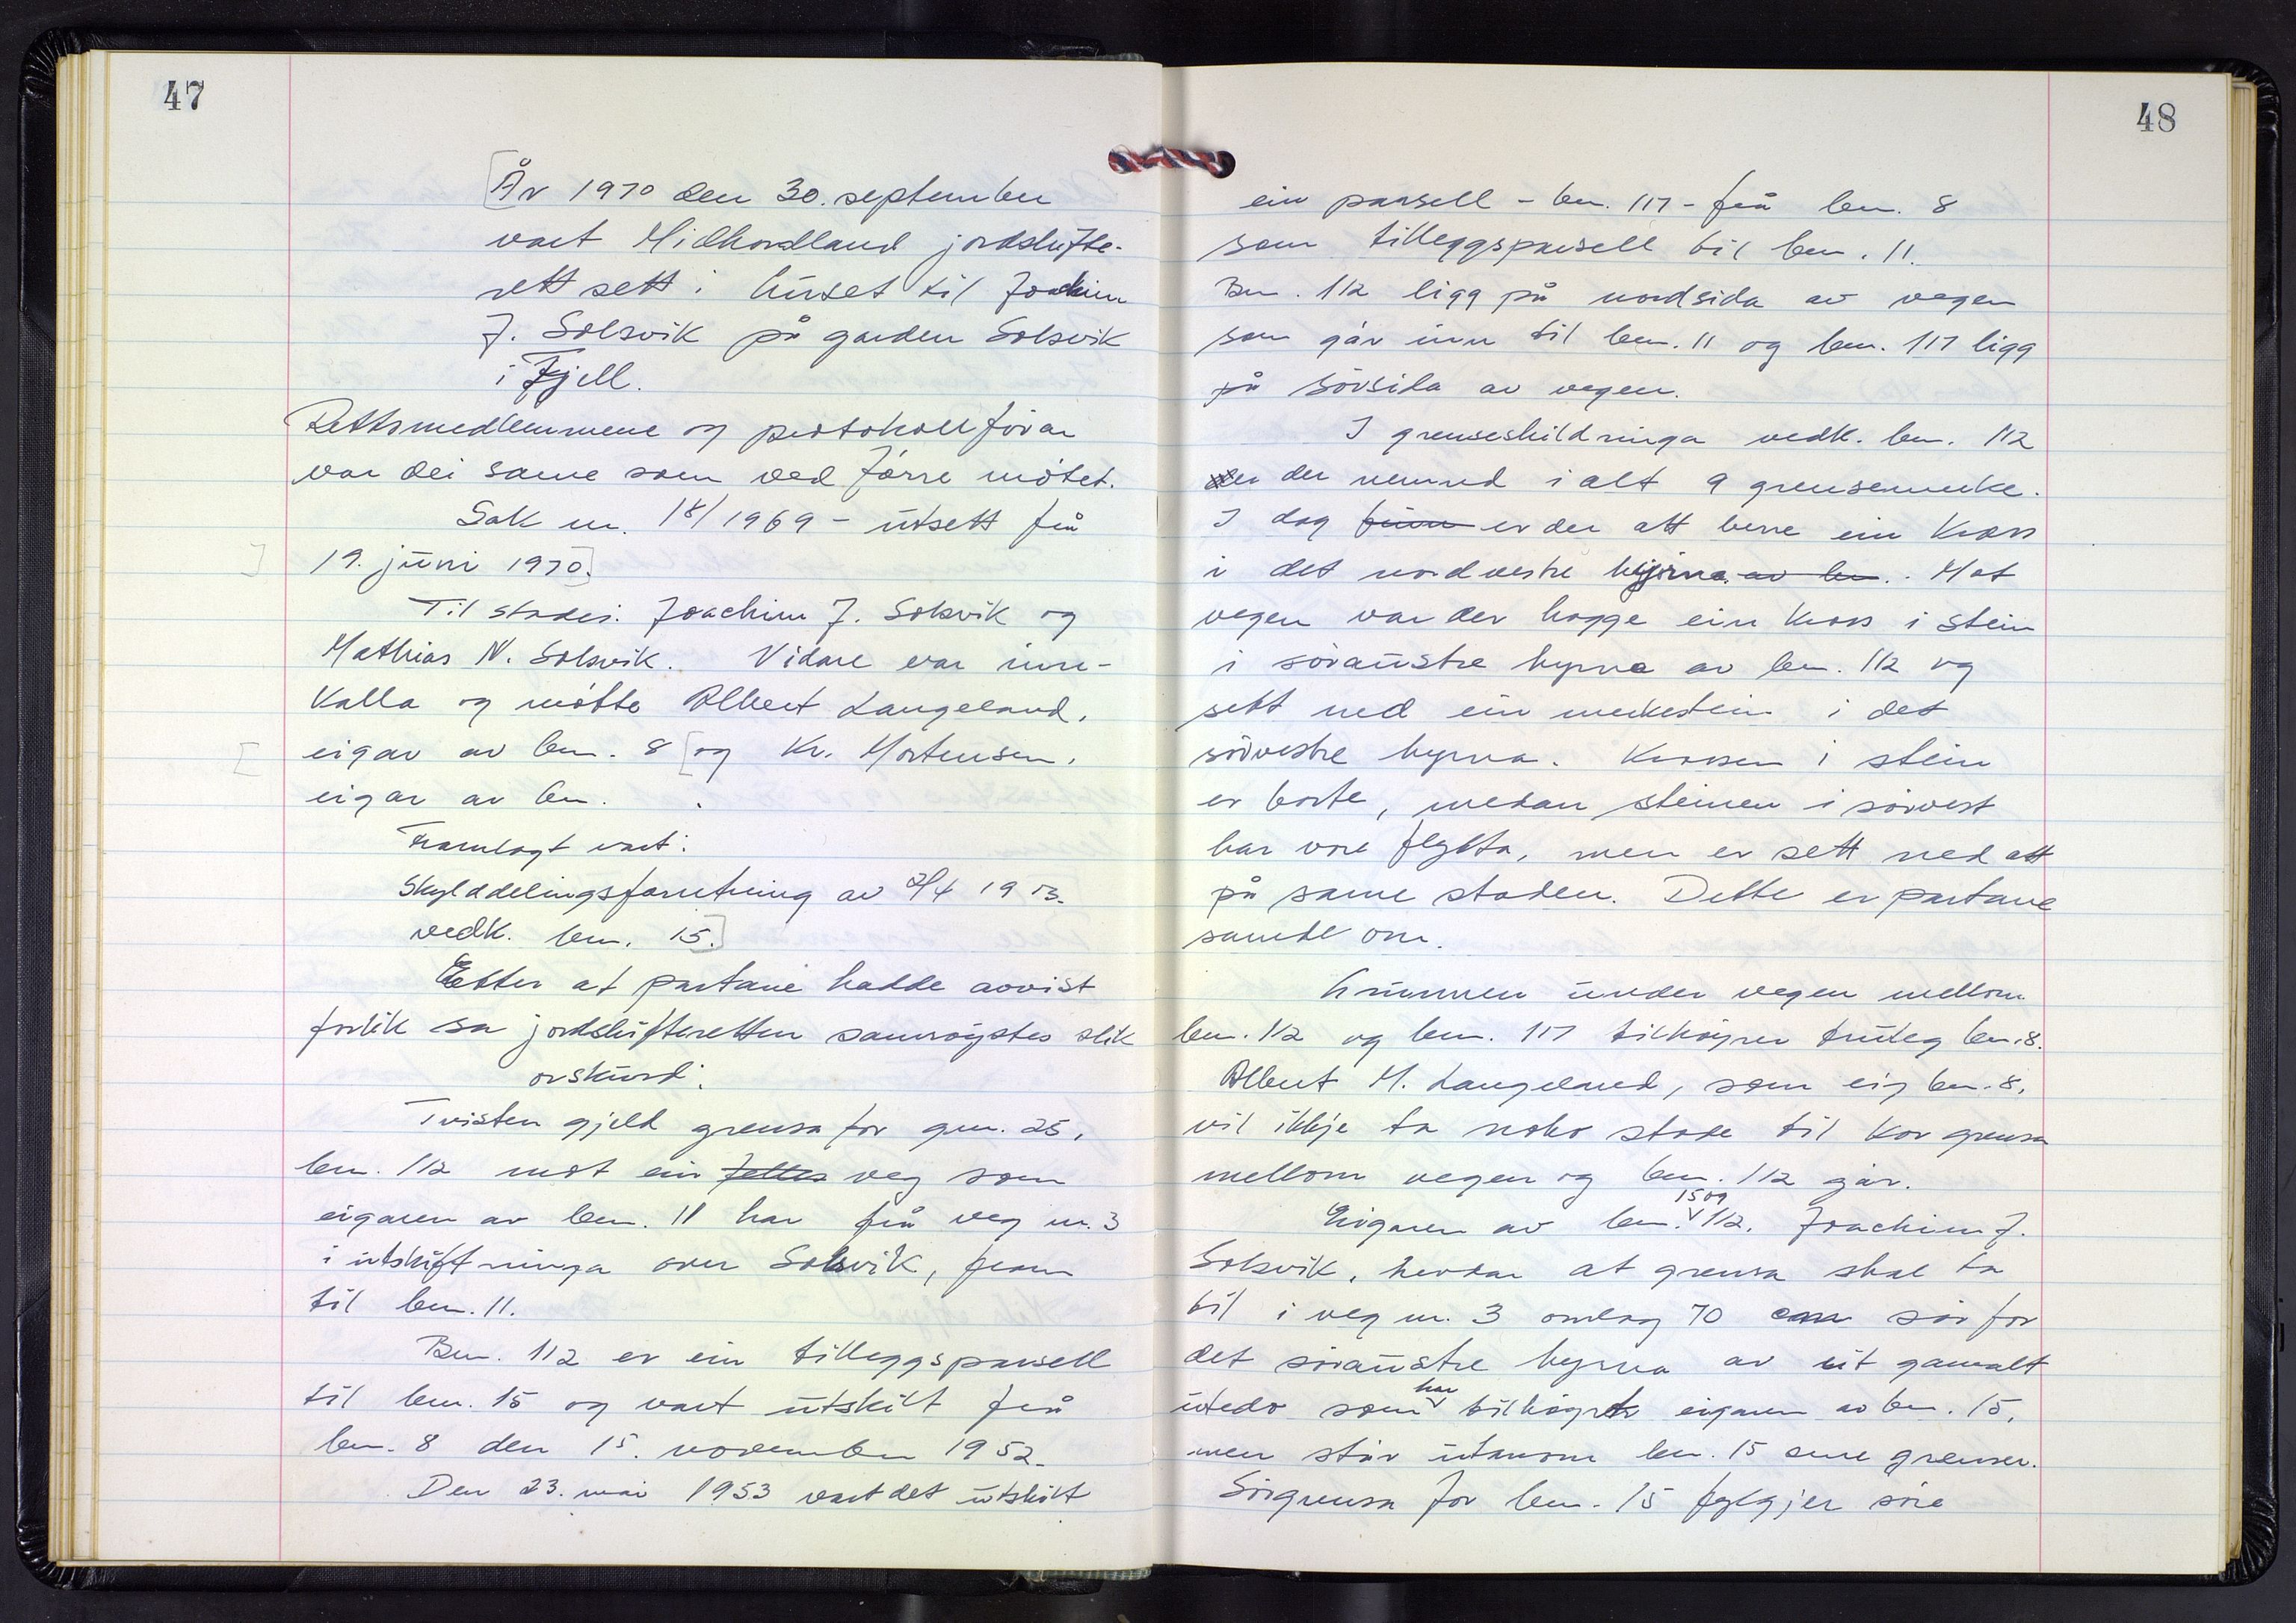 47
[År 1970 den 30. september
vart Midhordland jordskifte-
rett sett i huset til Joachim
J. Solsvik på garden Solsvik
i Fjell.
Rettsmedlemmene og protokollførar
var dei same som ved førre møtet.
Sak nr. 18/1969 - utsett frå
19. juni 1970].
Til stades: Joachim J. Solsvik og
Mathias N. Solsvik. Vidare var inn-
kalla og møtte Albert Langeland,
eigar av bnr. 8 [og Kr. Mortensen,
eigar av bnr.     .
Framlagt vart:
Skylddelingsforretning av 1913.
vedk. bnr. 15.]
Etter at partane hadde avvist
forlik sa jordskifteretten samrøystes slik
orskurd:
Tvisten gjeld grensa for gnr. 25,
bnr. 112 mot ein felles veg som
eigaren av bnr. 11 har frå veg nr. 3
i utskiftninga over Solsvik, fram
til bnr. 11.
Bnr. 112 er ein tilleggsparsell
til bnr. 15 og vart utskilt frå
bnr. 8 den 15. november 1952.
Den 23. mai 1953 vart det utskilt
48
ein parsell - bnr. 117 - frå bnr. 8
som tilleggsparsell til bnr. 11.
Bnr. 112 ligg på nordsida av vegen
som går inn til bnr. 11 og bnr. 117 ligg
på sørsida av vegen.
I grenseskildringa vedk. bnr. 112
er der nemnd i alt 9 grensemerke.
I dag finn er der att berre ein kross
i det nordvestre hyrna av bnr. . Mot
vegen var der hogge ein kross i stein
i søraustre hyrna av bnr. 112 og
sett ned ein merkestein i det
sørvestre hyrna. Krossen i stein
er borte, medan steinen i sørvest
har vore flytta, men er sett ned att
på same staden. Dette er partane
samde om.
Grunnen under vegen mellom
bnr. 112 og bnr. 117 tilhøyrer truleg bnr. 8.
Albert M. Langeland, som eig bnr. 8,
vil ikkje ta noko stode til kor grensa
mellom vegen og bnr. 112 går.
Eigaren av bnr. 15 og 112, Joachim J.
Solsvik, hevdar at grensa skal ta
til i veg nr. 3 omlag 70 cm sør for
det søraustre hyrna av eit gamalt
utedo som har tilhøyrt eigaren av bnr. 15,
men står utanom bnr. 15 sine grenser.
Sørgrensa for bnr. 15 fylgjer søre